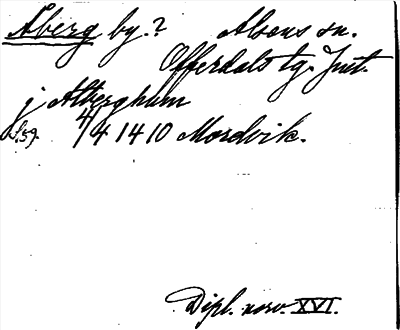 Åberg by.? Alsens sn.
Offerdals tg. Jmt.
j Atberghum
S. 59. 4/4 1410 Mordvik.
Dipl. norv. XVI.